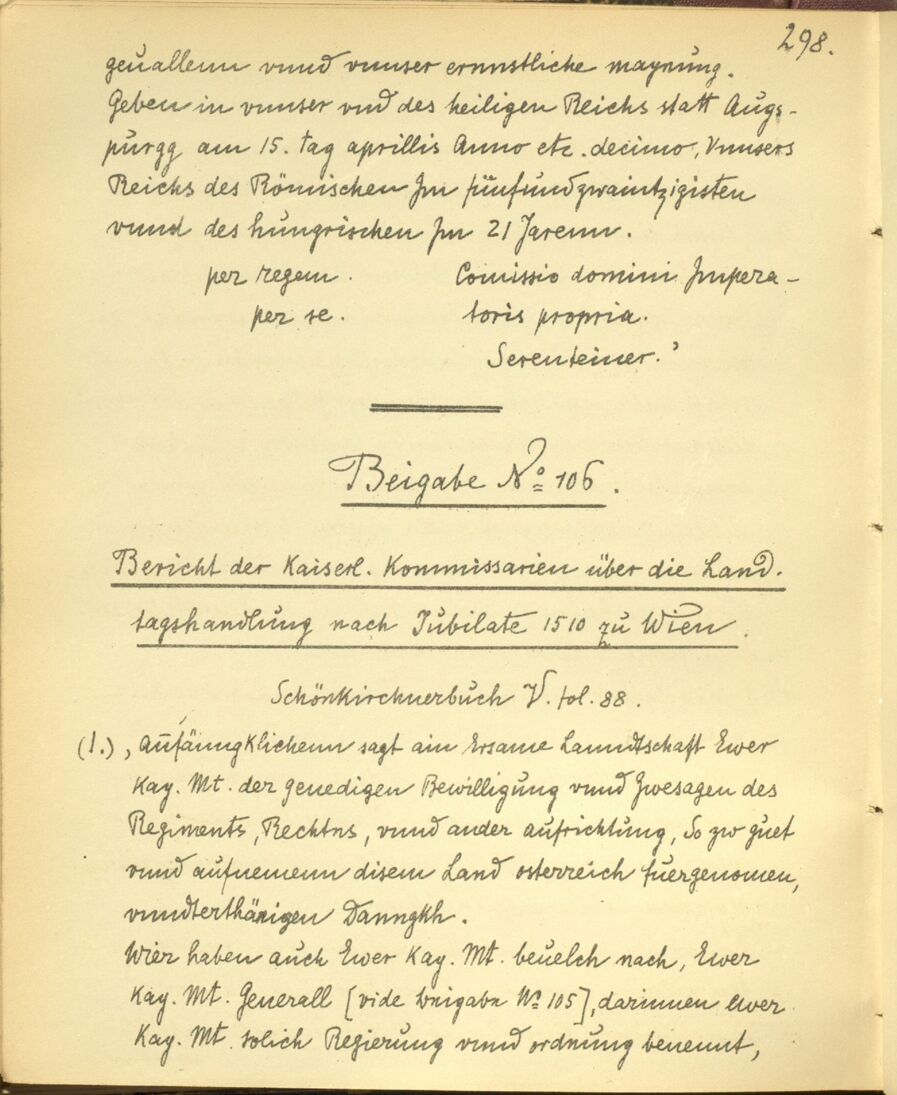 298.
geuallenn vnnd vnnser ernnstliche maynung.
Geben in vnnser vnd des heiligen Reichs statt Augs-
purgg am 15. tag aprillis Anno etc. decimo, Vnnsers
Reichs des Römischen Jm fünfundzwaintzigisten
vnnd des hungrischen Jm 21 Jarenn.
per regem. Comissio domini Jmpera-
per se. toris propria.
Serenteiner.'
Beigabe No 106.
Bericht der Kaiserl. Kommissarien über die Land-
tagshandlung nach Jubilate 1510 zu Wien.
Schönkirchnerbuch V. fol. 88.
(1.), Anfänngklichenn sagt ain Ersame Lanndtschaft Ewer
Kay. Mt. der genedigen Bewilligung vnnd Zwesagen des
Regiments, Rechtns, vnnd ander aufrichtung, So zw guet
vnnd aufnemenn disem Land osterreich fuergenomen,
vnndterthänigen Danngkh.
Wier haben auch Ewer Kay. Mt. beuelch nach, Ewer
Kay. Mt. Generall [vide Beigabe No 105], darinnen ewer
Kay. Mt. solich Regierung vnnd ordnung benennt,